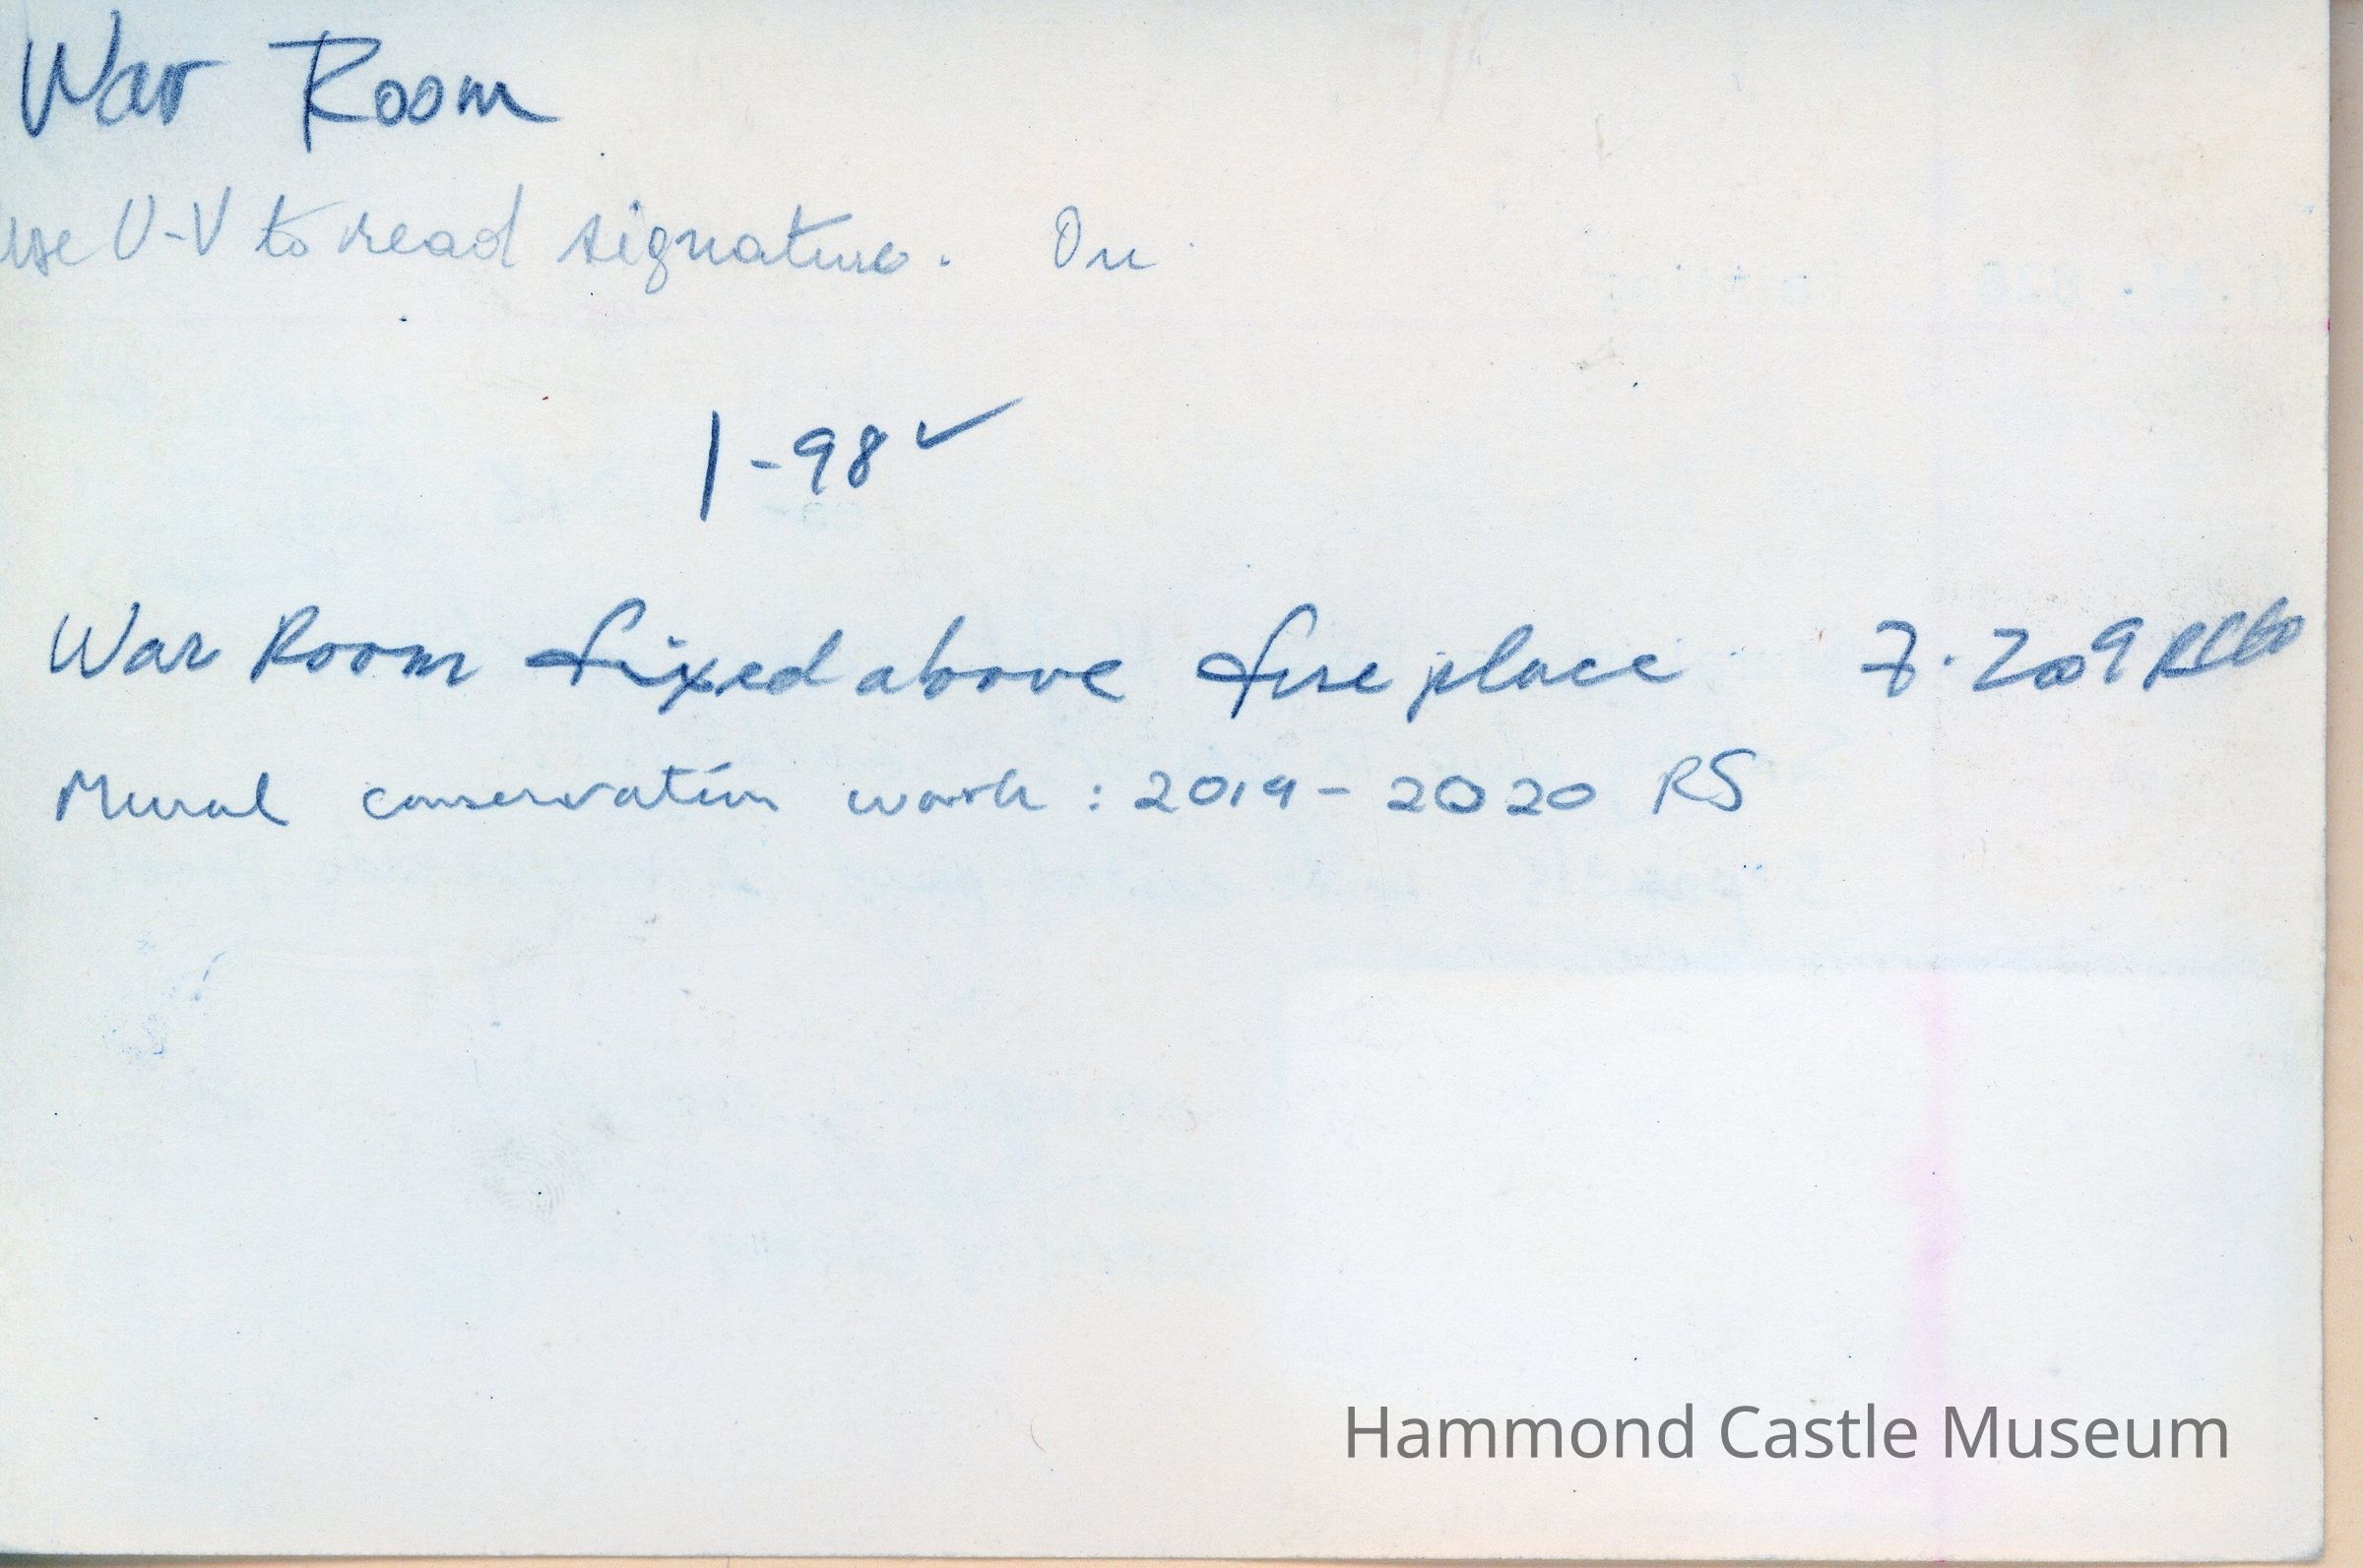 War Room
use U-V to read signature. On
1-98 ✓
War Room fixed above fireplace 7.2009
Mural conservation work : 2019-2020 RS
Hammond Castle Museum